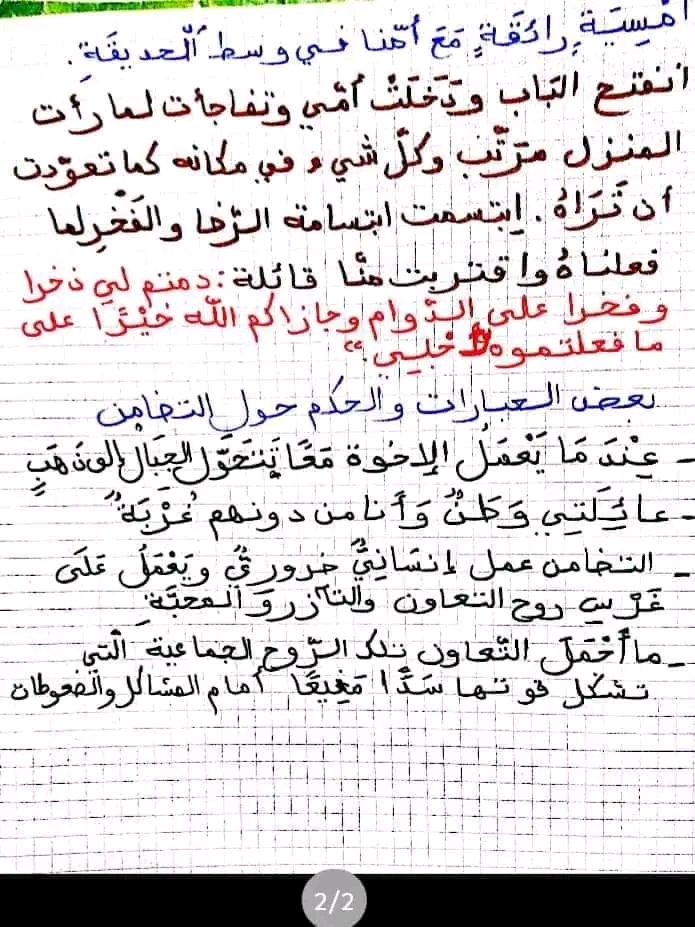 أمْسِيَة رائقَةٍ مَعَ أمّنا في وسط الْحديقَةِ.
انفتح البَاب وَدَخَلَتْ أمّي وتفاجأت لما رأت
المنزل مرَتَّب وكلّ شيء في مكانه كما تعوّدت
أن تَرَاهُ. ابتسمت ابتسامة الرّضا والفَخْر لما
فعلناهُ واقتربت منّا قائلة: دمتم لي ذخرا
وفخرا على الدّوام وجازاكم الله خَيْرًا على
ما فعلتموه لأجلي"
بعض العبارات والحكم حول التضامن
- عِنْدَ مَا يَعْمَلُ الإخوة مَعًا تَتَحَوَّل الجِبَال إلى ذَهَبٍ
- عائِلَتِي وَطَنٌ وَأَنا من دونهم غُرْبَةٌ
- التضامن عمل إنسَانِيٌّ ضروريٌّ ويَعْمَلُ عَلَى
غَرْسِ روح التعاون والتآزر وَالمحبَّةِ
- ما أَجْمَلَ التّعاون تلك الرّوح الجماعية الّتي
تشكل قوتها سَدًّا مَنِيعًا أمام المشاكل والضغوطات
2/2